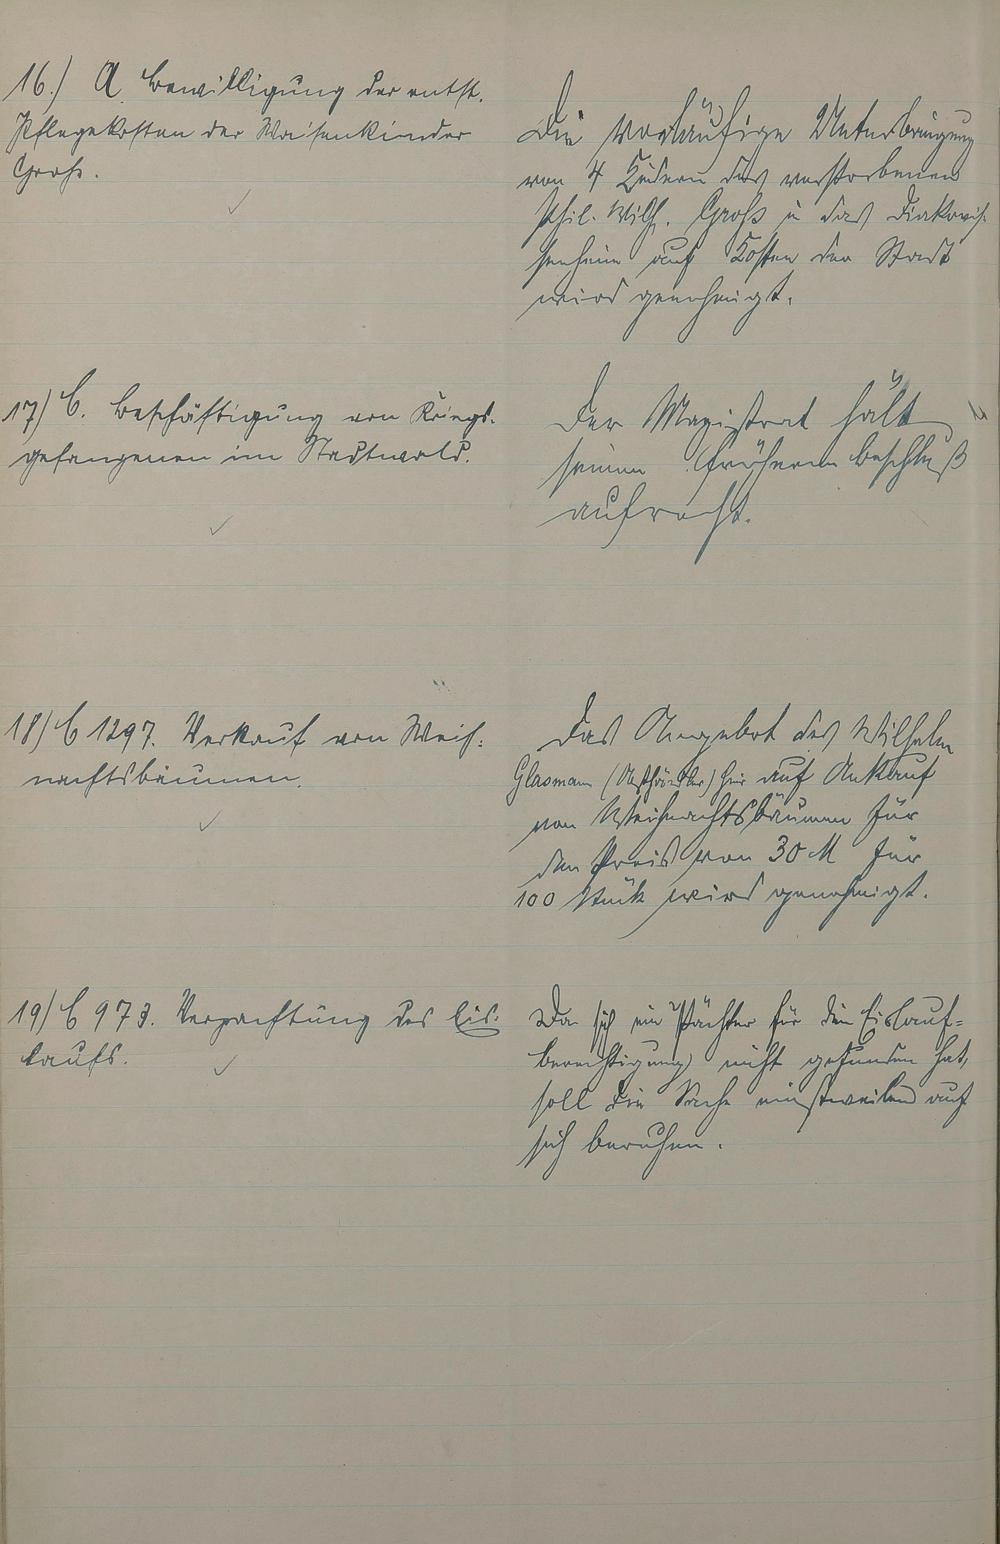 16.) A. Bewilligung der entst.
Pflegekosten der Waisenkinder
Groß.
Die vorläufige Unterbringung
von 4 Kindern des verstorbenen
Phil. Wilh. Groß in das Diakonis-
senheim auf Kosten der Stadt
wird genehmigt.
17) C. Beschäftigung von Kriegs-
gefangenen im Stadtwald.
Der Magistrat hält
seinen früheren Beschluß
aufrecht.
18) C 1297. Verkauf von Weih-
nachtsbäumen.
Das Angebot des Wilhelm
Glasmann (Obsthändler) hier auf Ankauf
von Weihnachtsbäumen für
den Preis von 30 M für
100 Stück wird genehmigt.
19) C 973. Verpachtung des Eis-
laufs.
Da sich ein Pächter für die Eislauf-
berechtigung nicht gefunden hat,
soll die Sache einstweilen auf
sich beruhen.